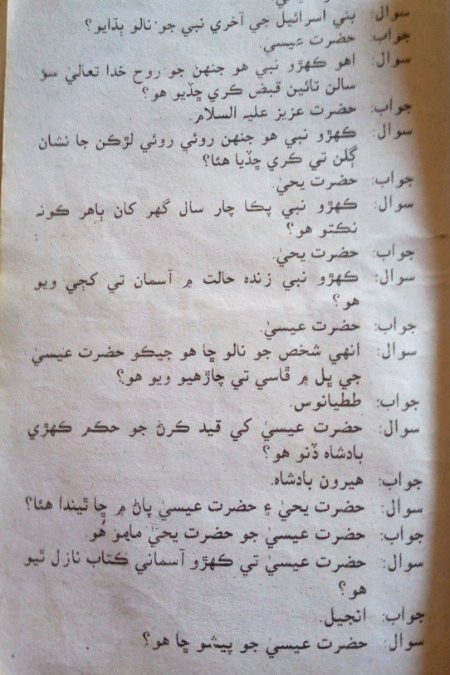 سوال: بني اسرائيل جي آخري نبي جو نالو ٻڌايو؟
جواب: حضرت عيسيٰ.
سوال: اهو ڪهڙو نبي هو جنهن جو روح خدا تعاليٰ سؤ
سالن تائين قبض ڪري ڇڏيو هو؟
جواب: حضرت عزيز عليہ السلام.
سوال: ڪهڙو نبي هو جنهن روئي روئي لڙڪن جا نشان
ڳلن تي ڪري ڇڏيا هئا؟
جواب: حضرت يحيٰ.
سوال: ڪهڙو نبي پڪا چار سال گهر کان ٻاهر ڪونہ
نڪتو هو؟
جواب: حضرت يحيٰ.
سوال: ڪهڙو نبي زنده حالت ۾ آسمان تي کڄي ويو
هو؟
جواب: حضرت عيسيٰ.
سوال: انهي شخص جو نالو ڇا هو جيڪو حضرت عيسيٰ
جي ڀل ۾ ڦاسي تي چاڙهيو ويو هو؟
جواب: ططيانوس.
سوال: حضرت عيسيٰ کي قيد ڪرڻ جو حڪم ڪهڙي
بادشاه ڏنو هو؟
جواب: هيرون بادشاه.
سوال: حضرت يحيٰ ۽ حضرت عيسيٰ پاڻ ۾ ڇا ٿيندا هئا؟
جواب: حضرت عيسيٰ جو حضرت يحيٰ مامو هُو.
سوال: حضرت عيسيٰ تي ڪهڙو آسماني ڪتاب نازل ٿيو
هو؟
جواب: انجيل.
سوال: حضرت عيسيٰ جو پيشو ڇا هو؟